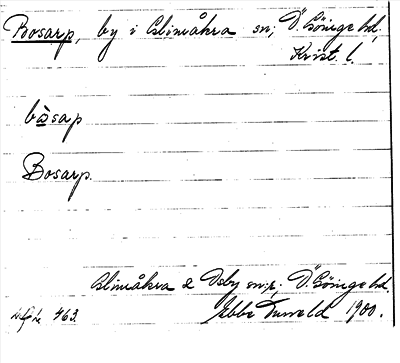 Bosarp, by i Glimåkra sn; Ö. Göinge hd,
Krist. l.
bòsap
Bosarp.
Glimåkra & Osby snr; Ö. Göinge hd.
463. Ebbe Tuneld 1900.